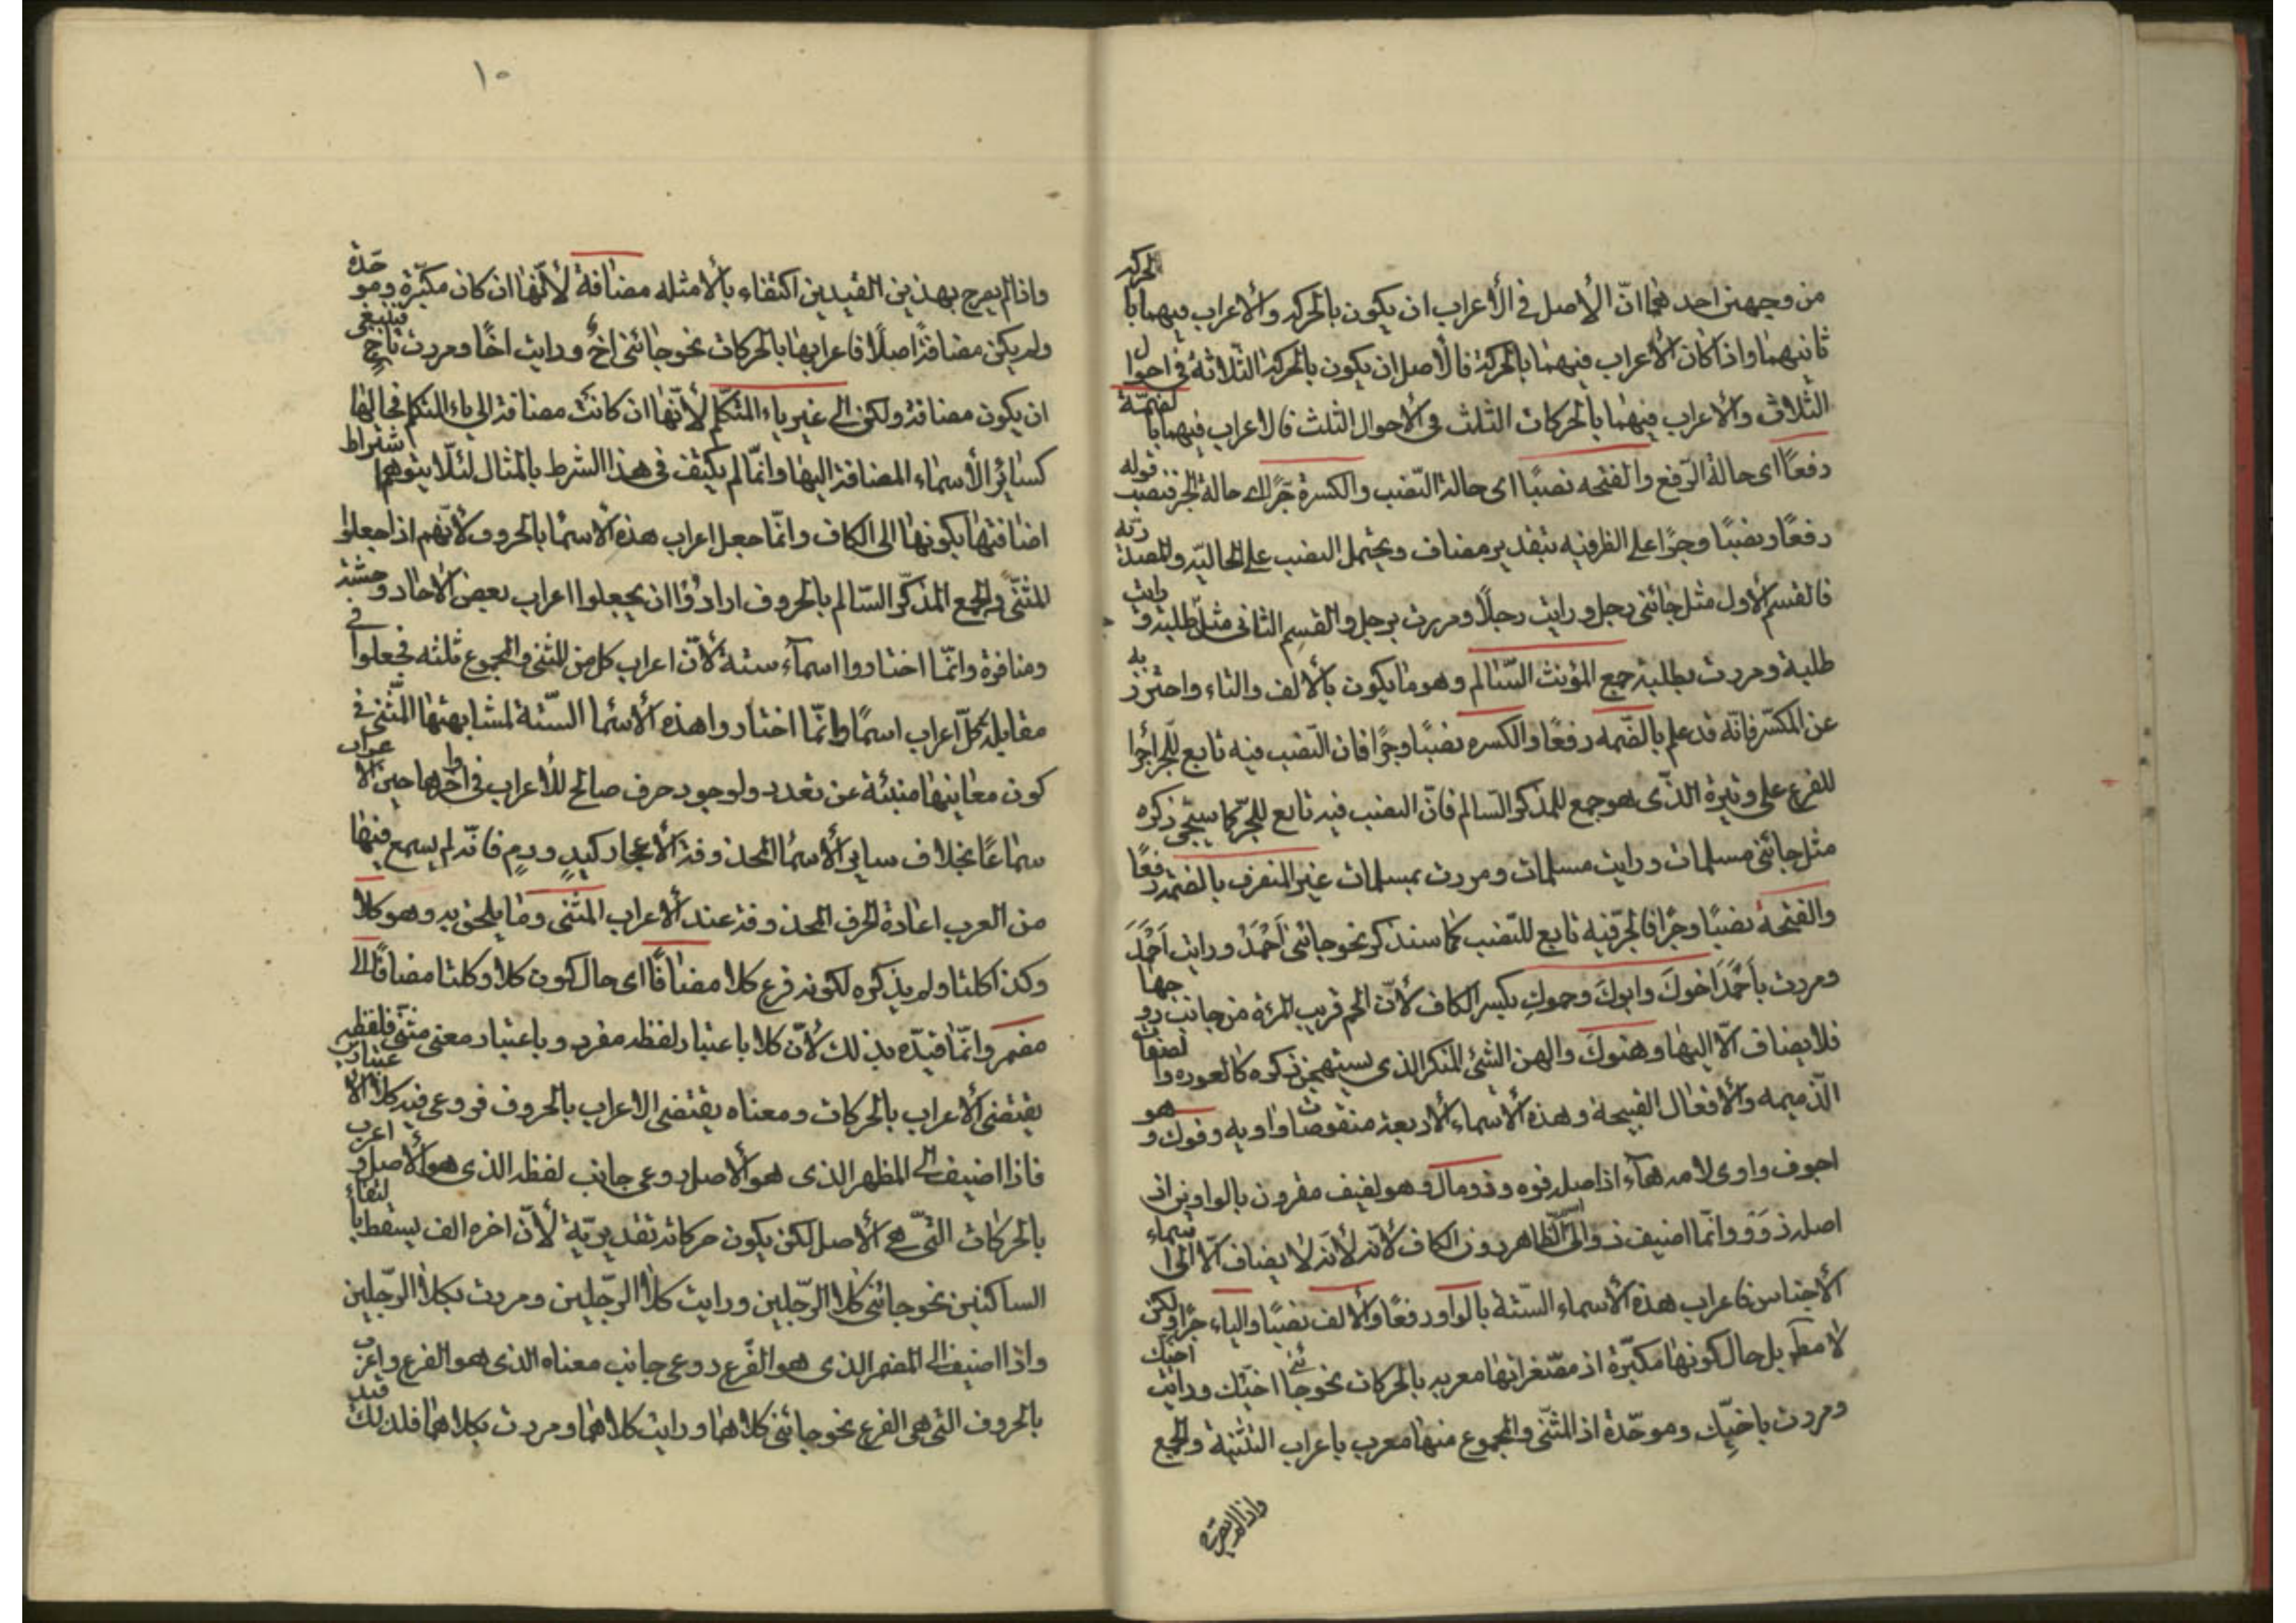 من وجهين احدهما انّ الأصل فى الأعراب ان يكون بالحركه والاعراب فيهما بالحركه
ثانيهما واذا كان الأعراب فيهما بالحركة فالأصل ان يكون بالحركة الثلاثة فى احوال
الثلاث والاعراب فيهما بالحركات الثلث فى الأحوال الثلث فالاعراب فيهما بالضمّة
رفعًا اى حالة الرّفع والفتحه نصبًا اى حالة النّصب والكسرة جرًّا اى حالة الجر فنصب قوله
رفعًا ونصبًا وجرًّا على الظرفيه بتقدير مضاف ويحتمل النصب على الحاليّه والمصدريّه
فالقسم الأول مثل جائنى رجل ورايت رجلًا ومررت برجل والقسم الثانى مثل طلبة ورايت
طلبة ومررت بطلبة جمع المؤنث السّالم وهو ما يكون بالألف والتاء واحترز به
عن المكسّر فانّه قد علم بالضّمه رفعًا والكسره نصبًا وجرًّا فان النّصب فيه تابع للجرّ اجرا
للفرع على وتيرة الذّى هو جمع للمذكر السّالم فانّ النصب فيه تابع للجرّ كما سيجئ ذكره
مثل جائنى مسلمات ورايت مسلمات ومررت بمسلمات غير المنصرف بالضمّه رفعًا
والفتحة نصبًا وجرًّا فالجرّ فيه تابع للنّصب كما سنذكر نحو جائنى أَحْمَدُ ورايت أَحْمَدَ
ومررت بأَحْمَدَ اخوكَ وابوكَ وحموكِ بكسر الكاف لأنّ الحم قريب المرءة من جانب زوجها
فلا يضاف الّا اليها وهنوكَ والهن الشئ المنكر الذى يستهجن ذكره كالعوره والصفات
الذّميمه والأفعال القبيحة وهذه الأسماء الأربعة منقوصات واويه وفوك وهو
اجوف واوى لامه هاء اذ اصله فوه وذومال وهو لفيف مقرون بالواوين اذ
اصله ذَوَوٌ وانّما اضيف ذو الى الظّاهر دون الكاف لأنّه لأنّه لا يضاف الّا الى اسماء
الأجناس فاعراب هذه الأسماء السّتة بالواو رفعًا والألف نصبًا والياء جرًّا ولكن
لا مطلقًا بل حال كونها مكبّرة اذ مصّغراتها معربه بالحركات نحو جائنى اخيّك ورايت اخيّك
ومررت باخيّك وموحّدة اذ المثنّى والمجموع منها معرب باعراب التثنية والجمع
واذا لم يصرح
١٠
واذا لم يصرح بهذين القيدين اكتفاء بالأمثله مضافة لأنّها ان كان مكبّرة وموحّدة
ولم يكن مضافةً اصلًا فاعرابها بالحركات نحو جائنى اخٌ ورايت اخًا ومررت باخٍ فينبغى
ان يكون مضافة ولكن الى غير ياء المتكلّم لأنّها ان كانت مضافة الى ياء المتكلم فحالها
كسائر الأسماء المضافة اليها وانّما لم يكتف فى هذا الشرط بالمثال لئلّا يتوهم اشتراط
اضافتها بكونها الى الكاف وانّما جعل اعراب هذه الأسما بالحروف لأنّهم اذا جعلوا
للمثنّى والجمع المذكّر السّالم بالحروف ارادوا ان يجعلوا اعراب بعض الأحاد وحشة
ومنافرة وانّما اختاروا اسماء ستة لأنّ اعراب كل من المثنى والمجموع ثلثه فجعلوا فى
مقابلة كلّ اعراب اسمًا وانّما اختاروا هذه الأسما السّتة لمشابهتها المثّنى فى
كون معانيها منبئة عن تعدد ولوجود حرف صالح للأعراب فى اواخرها حين الاعراب
سماعًا بخلاف ساير الأسما المحذوفة الأعجاز كيدٍ ودمٍ فانّه لم يسمع فيها
من العرب اعادة الحرف المحذوفة عند الأعراب المثنى وما يلحق به وهو كلا
وكذا كلتا ولم يذكره لكونه فرع كلا مضافًا اى حال كون كلا وكلتا مضافًا الى
مضمر وانّما قيدّه بذلك لأنّ كلا باعتبار لفظه مفرد وباعتبار معنى مثنّى فلفظه
يقتضى الأعراب بالحركات ومعناه يقتضى الاعراب بالحروف فروعى فيه كلا الاعتبارين
فاذا اضيف الى المظهر الذى هو الأصل روعى جانب لفظه الذى هو الأصل واعرب
بالحركات التّى هى الأصل لكن يكون حركاته تقديريّة لأنّ اخره الف يسقط بالتقاء
الساكنين نحو جائنى كلا الرّجلين ورايت كلا الرّجلين ومررت بكلا الرّجلين
واذا اضيف الى المضمر الذى هو الفّرع روعى جانب معناه الذى هو الفرع واعرب
بالحروف التى هى الفرع نحو جائنى كلاهما ورايت كلاهما ومررت بكلاهما فلذلك قيد